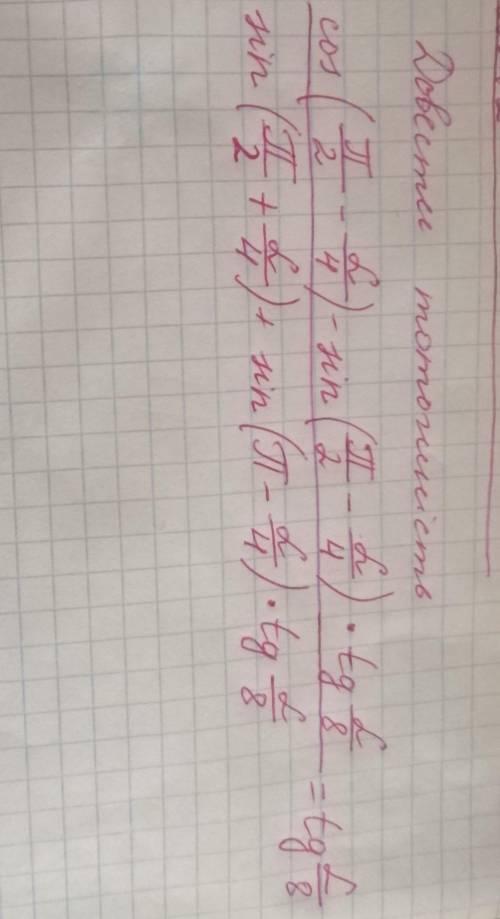 Довести тотожність
cos (π/2 - α/4) - sin (π/2 - α/4) · tg α/8
sin (π/2 + α/4) + sin (π - α/4) · tg α/8
= tg α/8